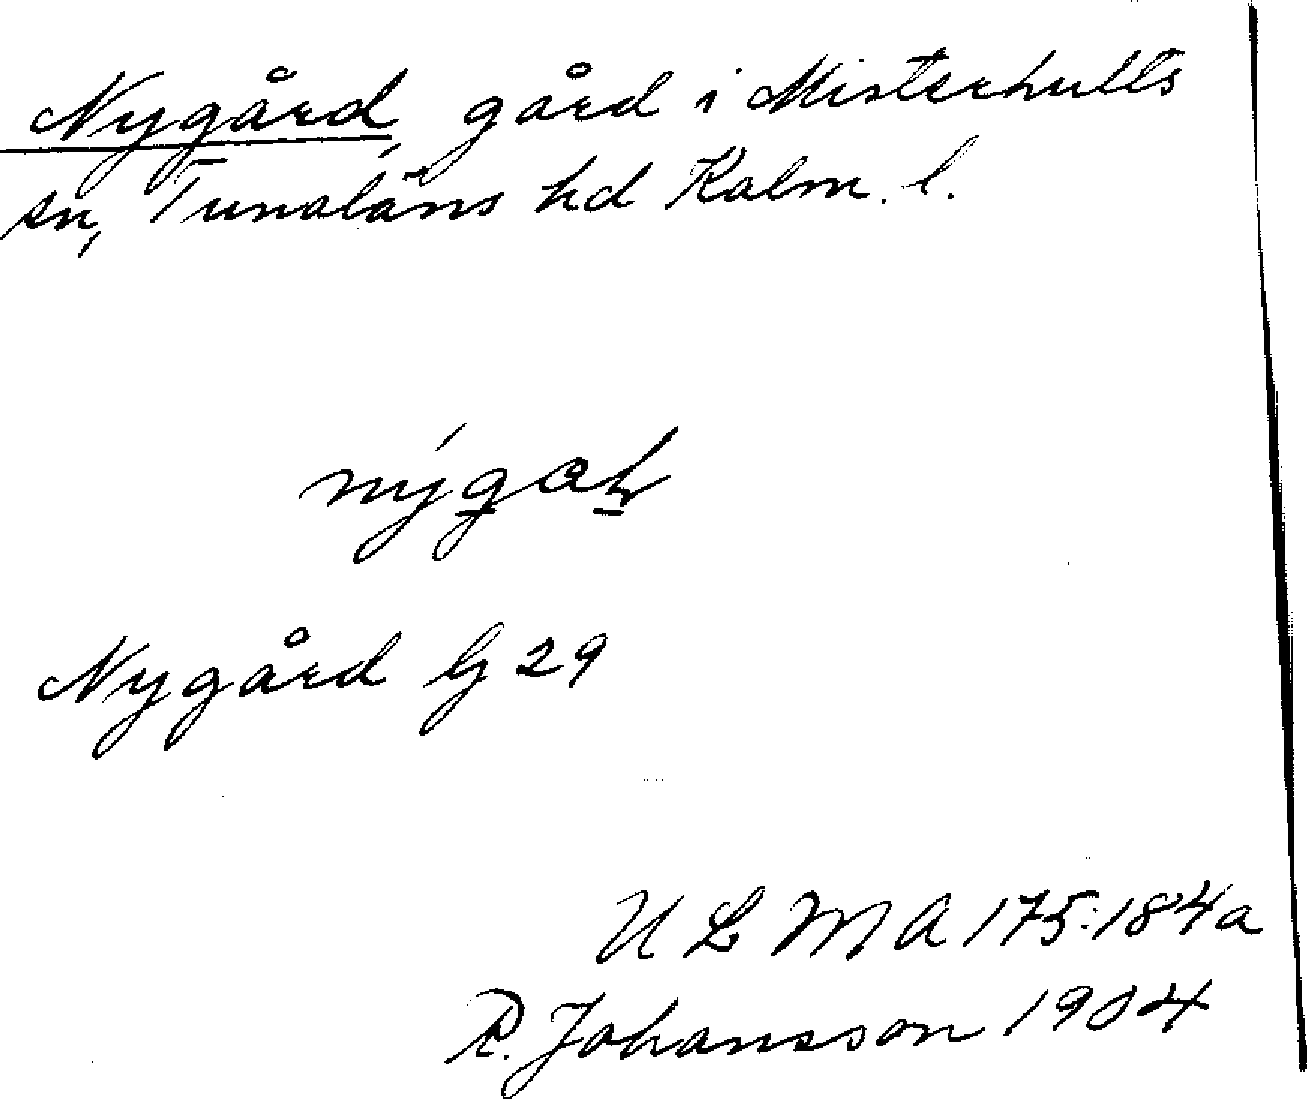 Nygård, gård i Misterhults
sn, Tunaläns hd Kalm. l.
Nygård G 29
U L M A 175:184a
R. Johansson 1904